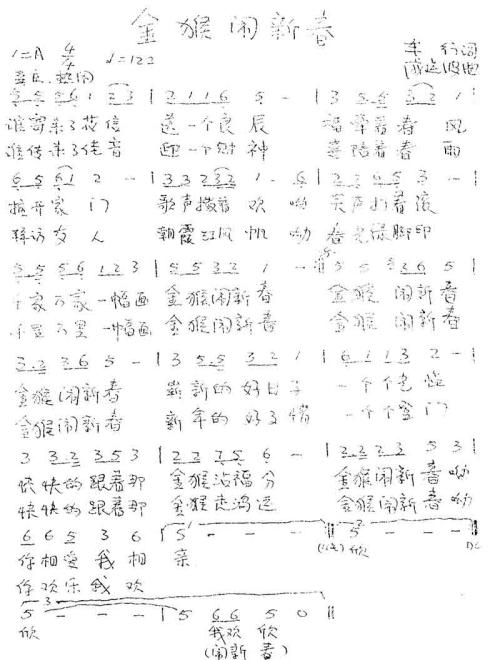 金猴闹新春
1=A 4/4 ♩=122
车 行词
喜庆、热闹
5 5 5 6 1 2 3 | 2 1 1 6 5 - | 3 5 5 3 2 1
谁寄来了花信 选一个良辰 福举着春 风
谁传来了佳音 迎一个财神 喜陪着春 雨
6 5 6 1 2 - | 3 3 2 3 2 1 · 6 | 2 2 6 5 3 - |
推开家 门 歌声搂着 欢 呦 笑声打着滚
拜访友 人 朝霞 红 风 帆 呦 春光 脚印
5 5 5 6 1 2 3 | 5 5 3 2 1 - 5 5 3 6 5 |
千家万家一幅画 金猴闹新春 金猴 闹新春
千里万里一幅画 金猴闹新春 金猴 闹新春
3 2 3 6 5 - | 3 5 5 3 2 1 | 6 1 1 3 2 - |
金猴闹新春 崭新的 好日子 一个个
金猴闹新春 新年的 好 一个个登门
3 3 2 3 5 3 | 2 2 7 5 6 - | 2 2 2 3 5 3 |
快快的跟着那 金猴沾福分 金猴闹新春呦
快快的跟着那 金猴走鸿运 金猴闹新春呦
6 6 5 3 6 | 5 - - - 5 - - -
你相爱 我相 亲 欣 D.C.
你欢乐 我欢
3
5 - - - | 5 6 6 5 0 ‖
欣 我欢 欣
(闹新 春)